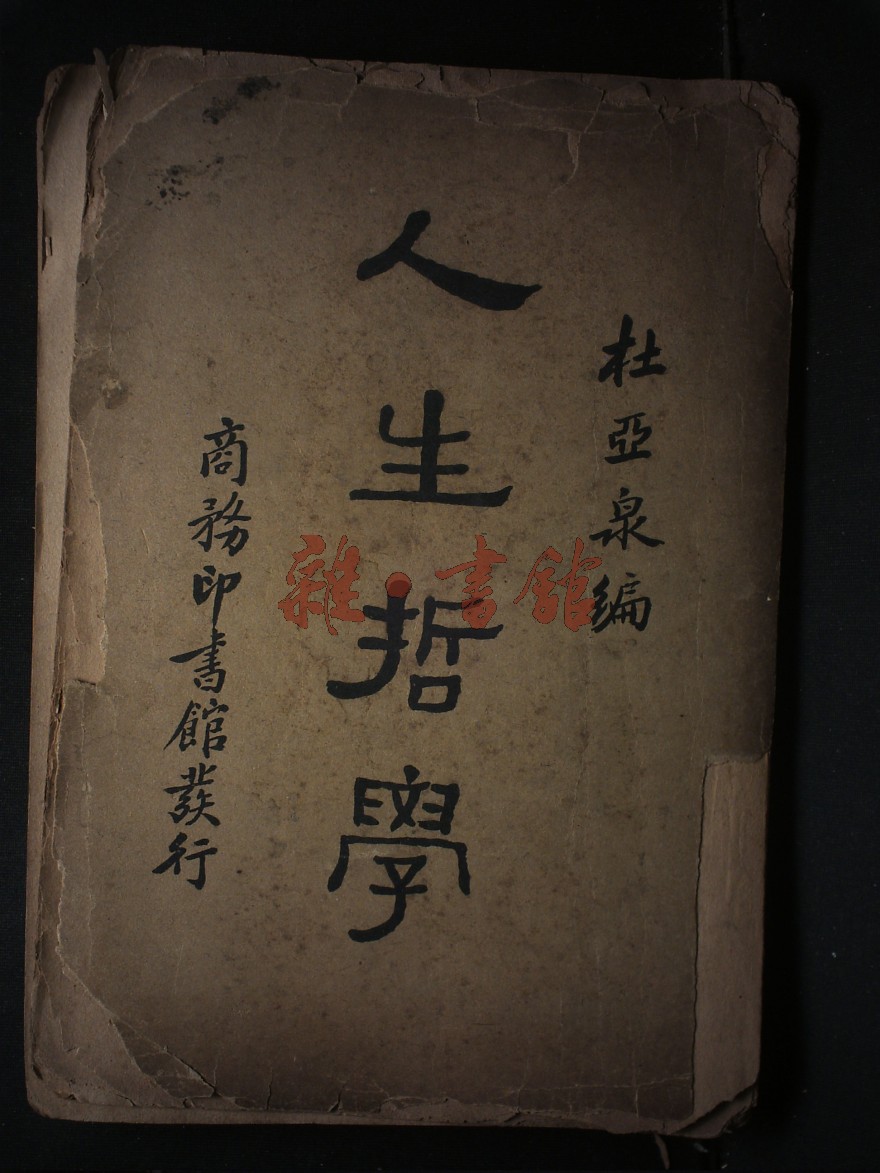 杜亞泉編
人生哲學
商務印書館發行
雜·書館